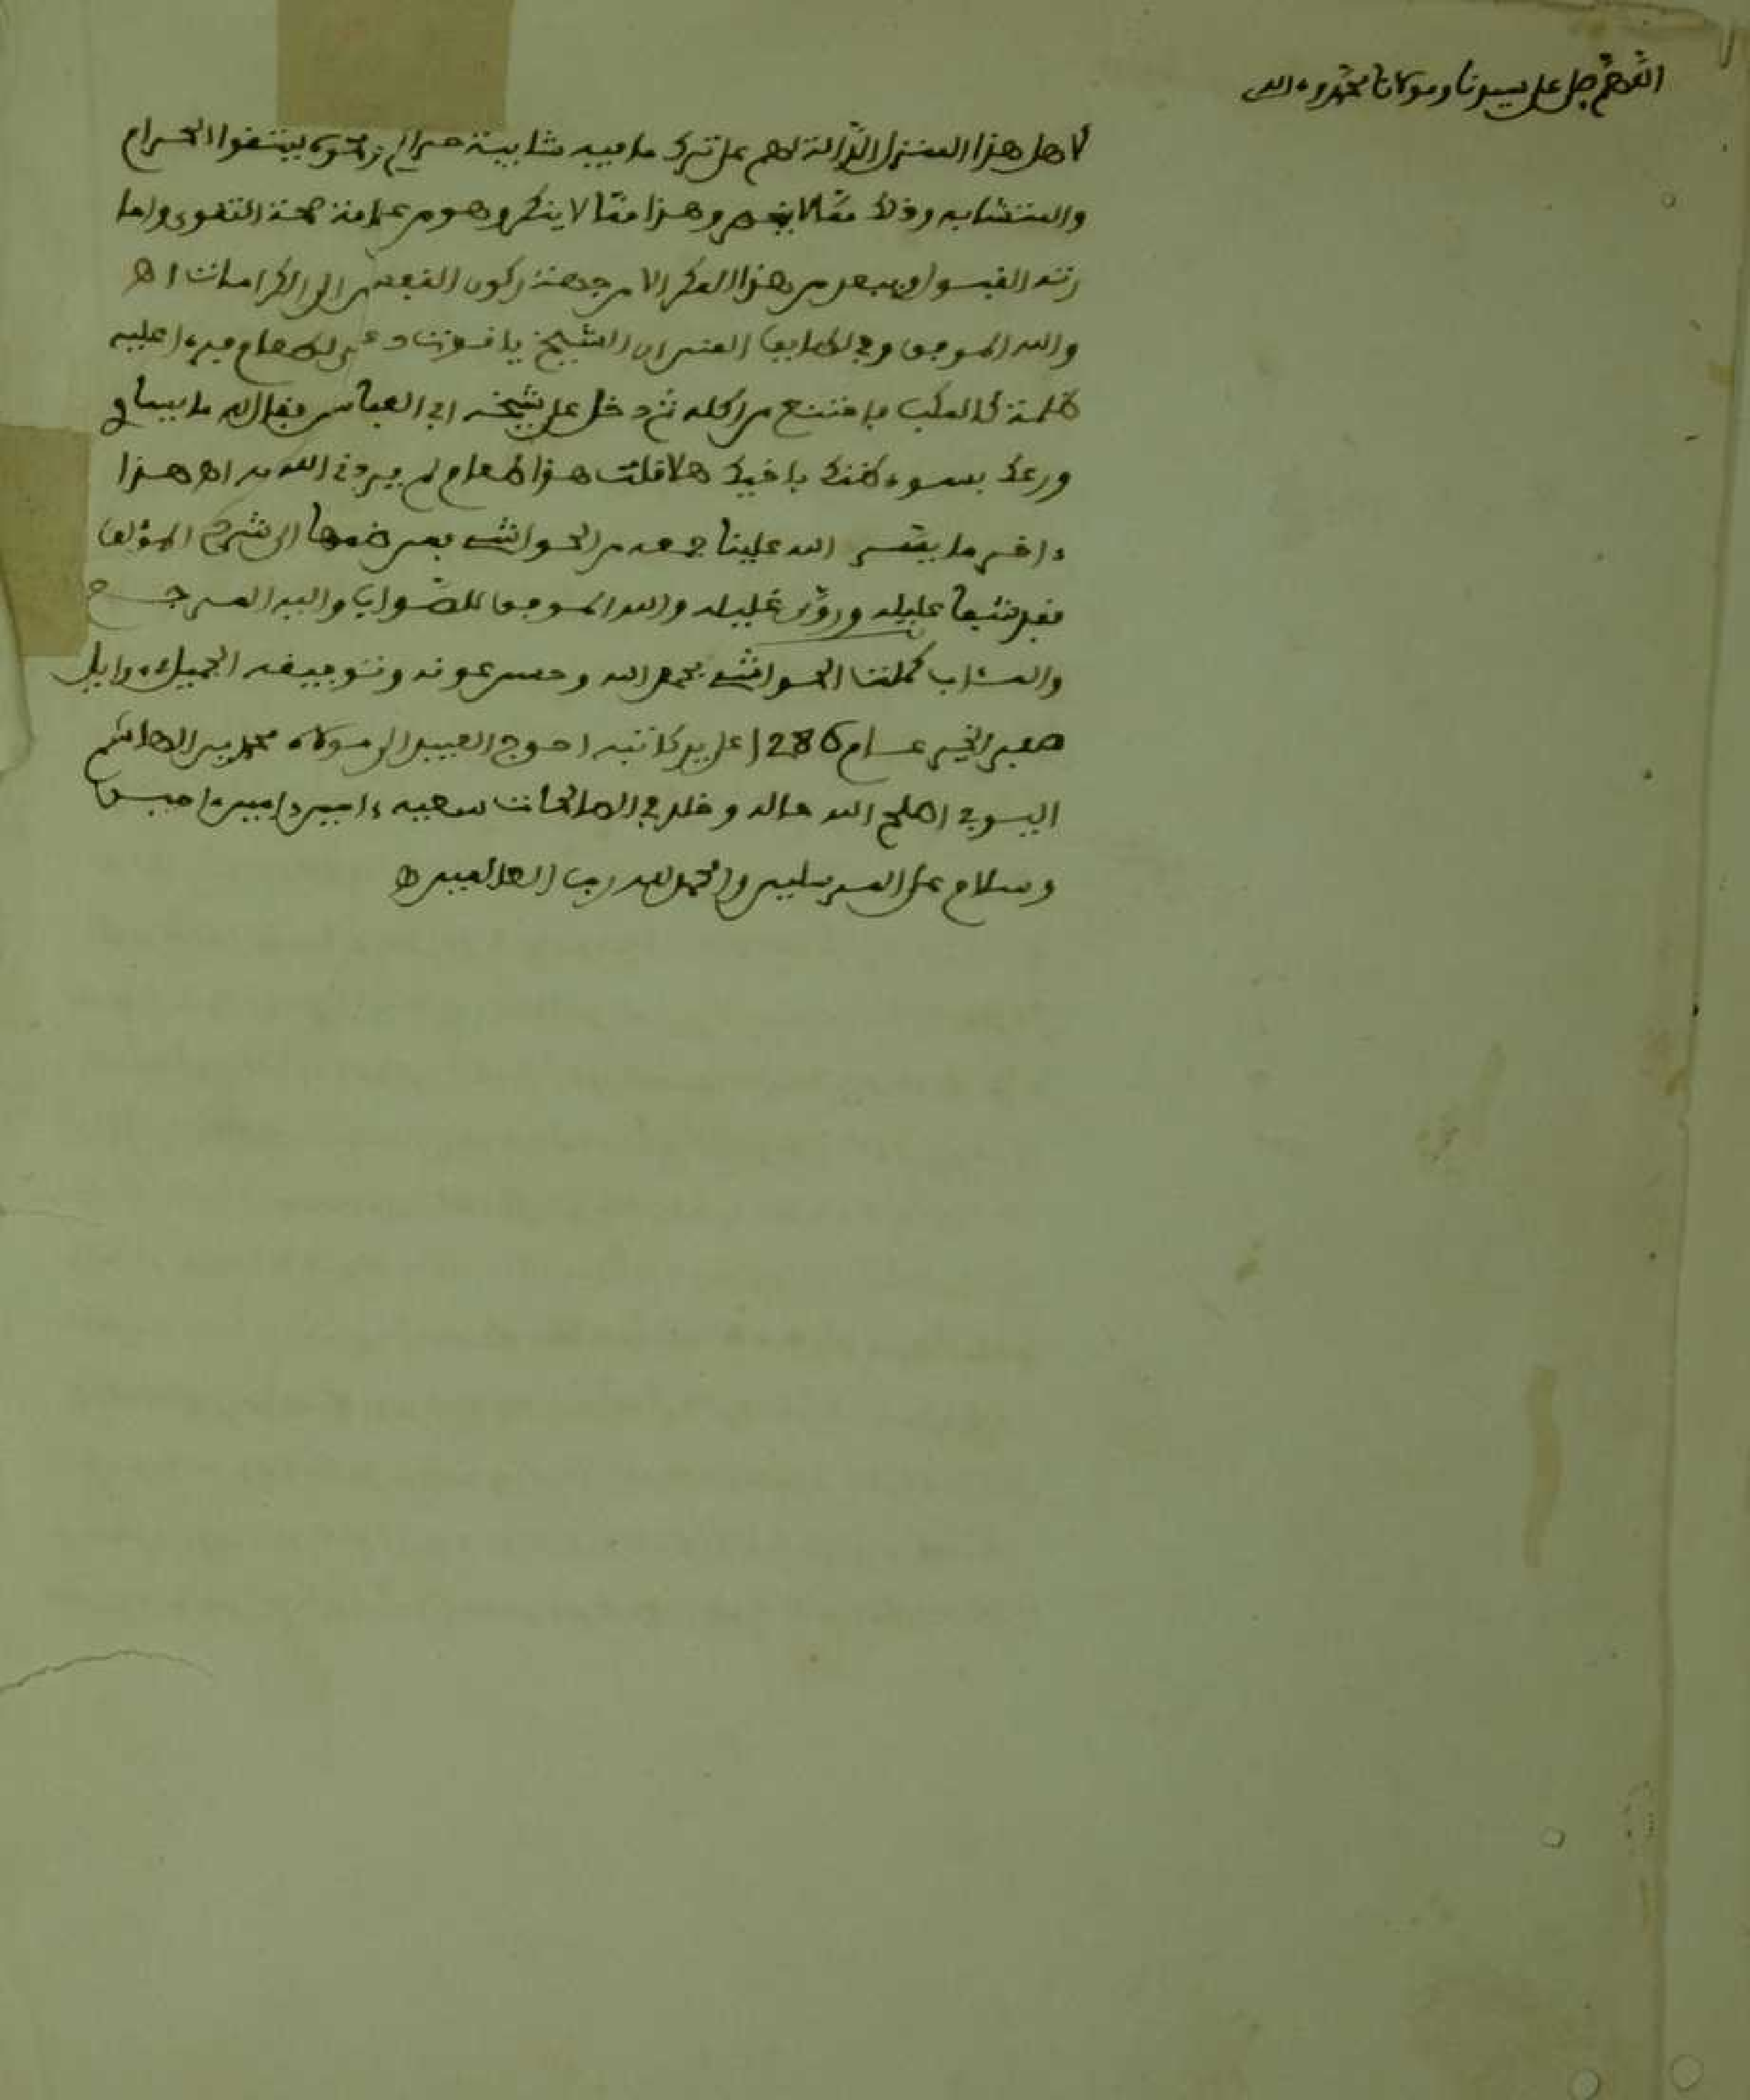 اللهم صل على سيدنا ومولانا محمد وءاله
لاهل هذا المنزل الدالة لهم على ترك ما فيه شايبة حرام او نحوه ليتقوا الحرام
والمتشابه وذلك مما لا وهذا مما لا ينكر وهو من علامة صحة التقوى واما
رتبة القبول فيبعد من هذا المكر الا من جهة ركون النفس الى الكرامات اه
والله الموفق وفي لطايف المنن ان الشيخ ياقوت دعي لطعام فرءا عليه
ظلمة كالمكب فامتنع من اكله ثم دخل على شيخه ابي العباس فقال له ما يساوي
ورعك بسوء ظنك باخيك هلا قلت هذا طعام لم يردني الله به اه هذا
ءاخر ما يسر الله علينا جمعه من الحواشي فمن ضمها الى شرح المؤلف
فقد شفا عليله وروى غليله والله الموفق للصواب واليه المرجع
والمئاب كملت الحواشي بحمد الله وحسن عونه وتوفيقه الجميل اوايل
صفر الخير عام 1286 على يد كاتبه احوج العبيد الى مولاه محمد بن الهاشم
اصلح الله حاله وخلد في الصالحات سعيه ءامين ءامين ءامين
وسلام على المرسلين والحمد لله رب العالمين اه